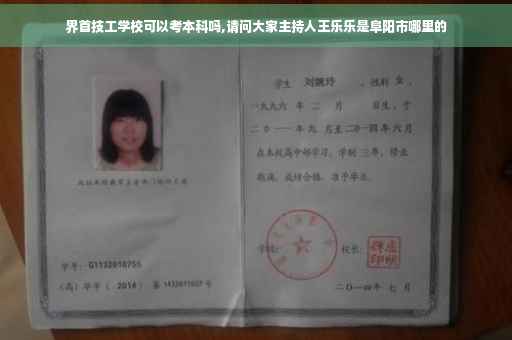 界首技工学校可以考本科吗,请问大家主持人王乐乐是阜阳市哪里的
学生 刘婉玲 ，性别 女 ，
一九九六 年 二 月 日生，于
二〇一一 年 九 月至二〇一四 年 六 月
在本校高中部学习，学制 三 年，修业
期满，成绩合格，准予毕业。
学校： 校长：
二〇一四年 七 月
学号：G1132010755
（高）毕字（ 2014 ）第 1432011027 号